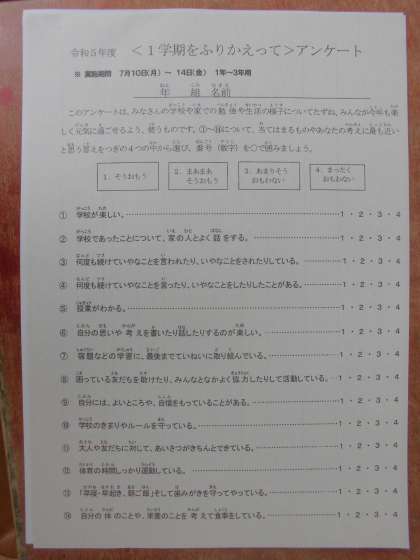 令和５年度　＜１学期をふりかえって＞アンケート
※ 実施期間　7月10日(月) ～ 14日(金)　1年～3年用
年　組　名前
このアンケートは、みなさんの学校や家での勉強や生活の様子についてたずね、みんなが今年も楽
しく元気に過ごせるよう、使うものです。①～⑭について、当てはまるものやあなたの考えに最も近い
と思う答えをつぎの４つの中から選び、番号（数字）を○で囲みましょう。
１．そうおもう　２．まあまあそうおもう　３．あまりそうおもわない　４．まったくおもわない
① 学校が楽しい。 1・2・3・4
② 学校であったことについて、家の人とよく話をする。 1・2・3・4
③ 何度も続けていやなことを言われたり、いやなことをされたりしている。 1・2・3・4
④ 何度も続けていやなことを言ったり、いやなことをしたりしたことがある。 1・2・3・4
⑤ 授業がわかる。 1・2・3・4
⑥ 自分の思いや考えを書いたり話したりするのが楽しい。 1・2・3・4
⑦ 宿題などの学習に、最後までていねいに取り組んでいる。 1・2・3・4
⑧ 困っている友だちを助けたり、みんなとなかよく協力したりして活動している。 1・2・3・4
⑨ 自分には、よいところや、自信をもっていることがある。 1・2・3・4
⑩ 学校のきまりやルールを守っている。 1・2・3・4
⑪ 大人や友だちに対して、あいさつがきちんとできている。 1・2・3・4
⑫ 体育の時間しっかり運動している。 1・2・3・4
⑬ 「早寝・早起き、朝ご飯」そして歯みがきを守ってやっている。 1・2・3・4
⑭ 自分の体のことや、栄養のことを考えて食事をしている。 1・2・3・4